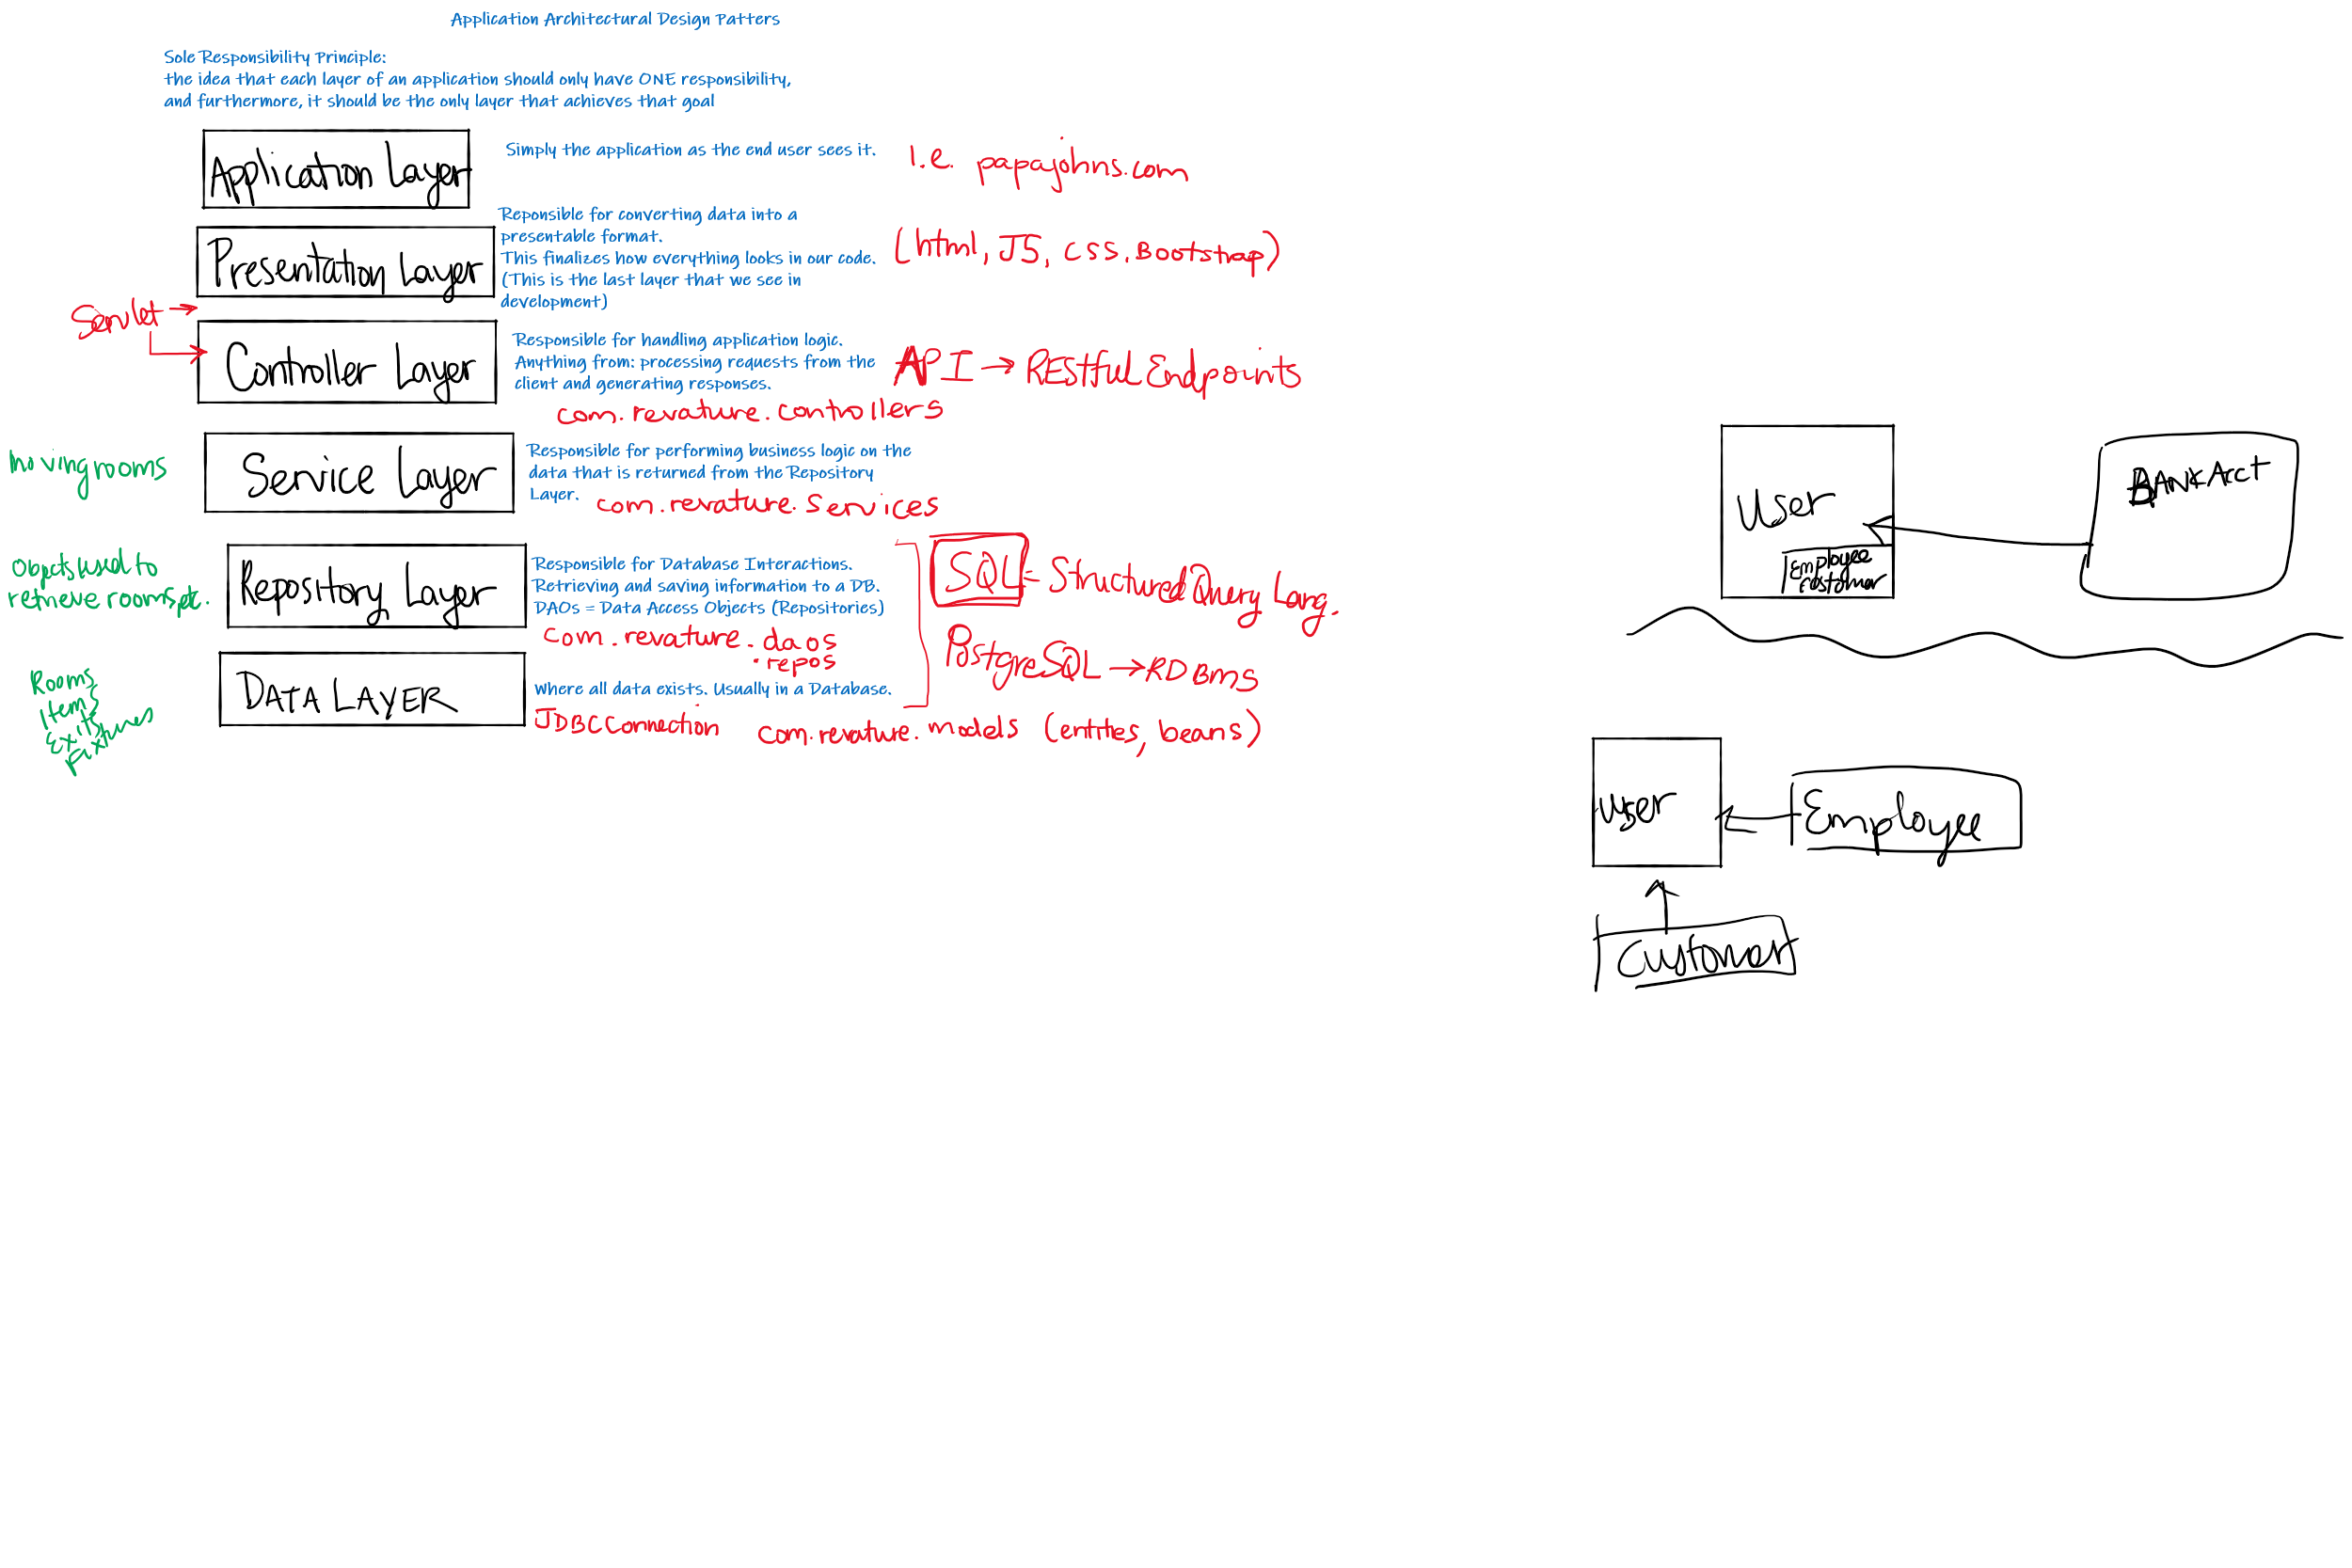 Application Architectural Design Patters
Sole Responsibility Principle:
the idea that each layer of an application should only have ONE responsibility,
and furthermore, it should be the only layer that achieves that goal
Application Layer
Simply the application as the end user sees it.
I.e. papajohns.com
Presentation Layer
Reponsible for converting data into a
presentable format.
This finalizes how everything looks in our code.
(This is the last layer that we see in
development)
(html, JS, CSS, Bootstrap)
Servlet →
Controller Layer
Responsible for handling application logic.
Anything from: processing requests from the
client and generating responses.
API → RESTful Endpoints
com.revature.controllers
moving rooms
Service Layer
Responsible for performing business logic on the
data that is returned from the Repository
Layer.
com.revature.services
Objects used to
retrieve rooms, etc.
Repository Layer
Responsible for Database Interactions.
Retrieving and saving information to a DB.
DAOs = Data Access Objects (Repositories)
com.revature.daos
.repos
SQL - Structured Query Lang.
PostgreSQL → RDBMS
Rooms
Items
Exits
Fixtures
DATA LAYER
Where all data exists. Usually in a Database.
JDBC Connection
com.revature.models (entities, beans)
User
Employee
Customer
BANK Acct
User
Employee
Customer